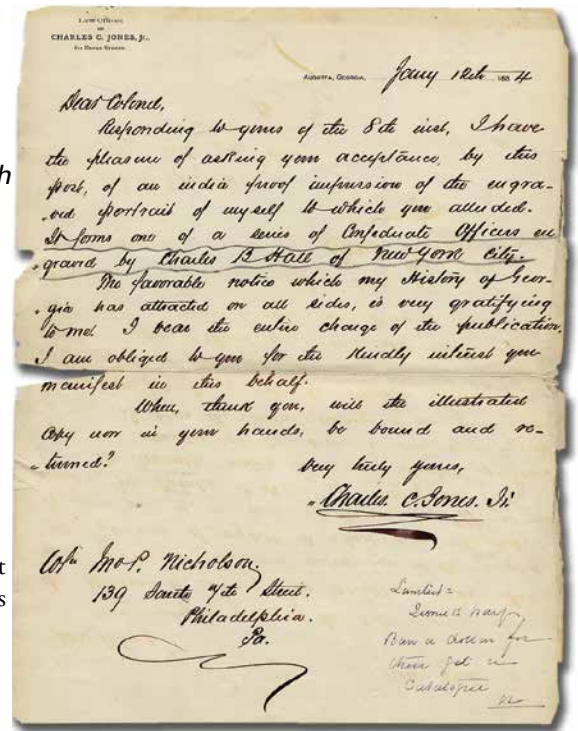 Law Offices
OF
CHARLES C. JONES, Jr.
AUGUSTA, GEORGIA, Jany 12th 1884
Dear Colonel,
Responding to yours of the 8th inst, I have
the pleasure of asking your acceptance, by this
post, of an india proof impression of the engra-
-ved portrait of myself to which you alluded.
It forms one of a series of Confederate Officers en
-graved by Charles B Hall of New York City.
The favorable notice which my History of Geor-
-gia has attracted on all sides, is very gratifying
to me. I bear the entire charge of the publication.
I am obliged to you for the kindly interest you
manifest in this behalf.
When, think you, will the illustrated
copy now in your hands, be bound and re-
-turned?
Very truly yours,
Charles. C. Jones. Jr.
Jno P. Nicholson.
139 South Street.
Philadelphia.
Pa.
for
get
Catalogue
h
t
s